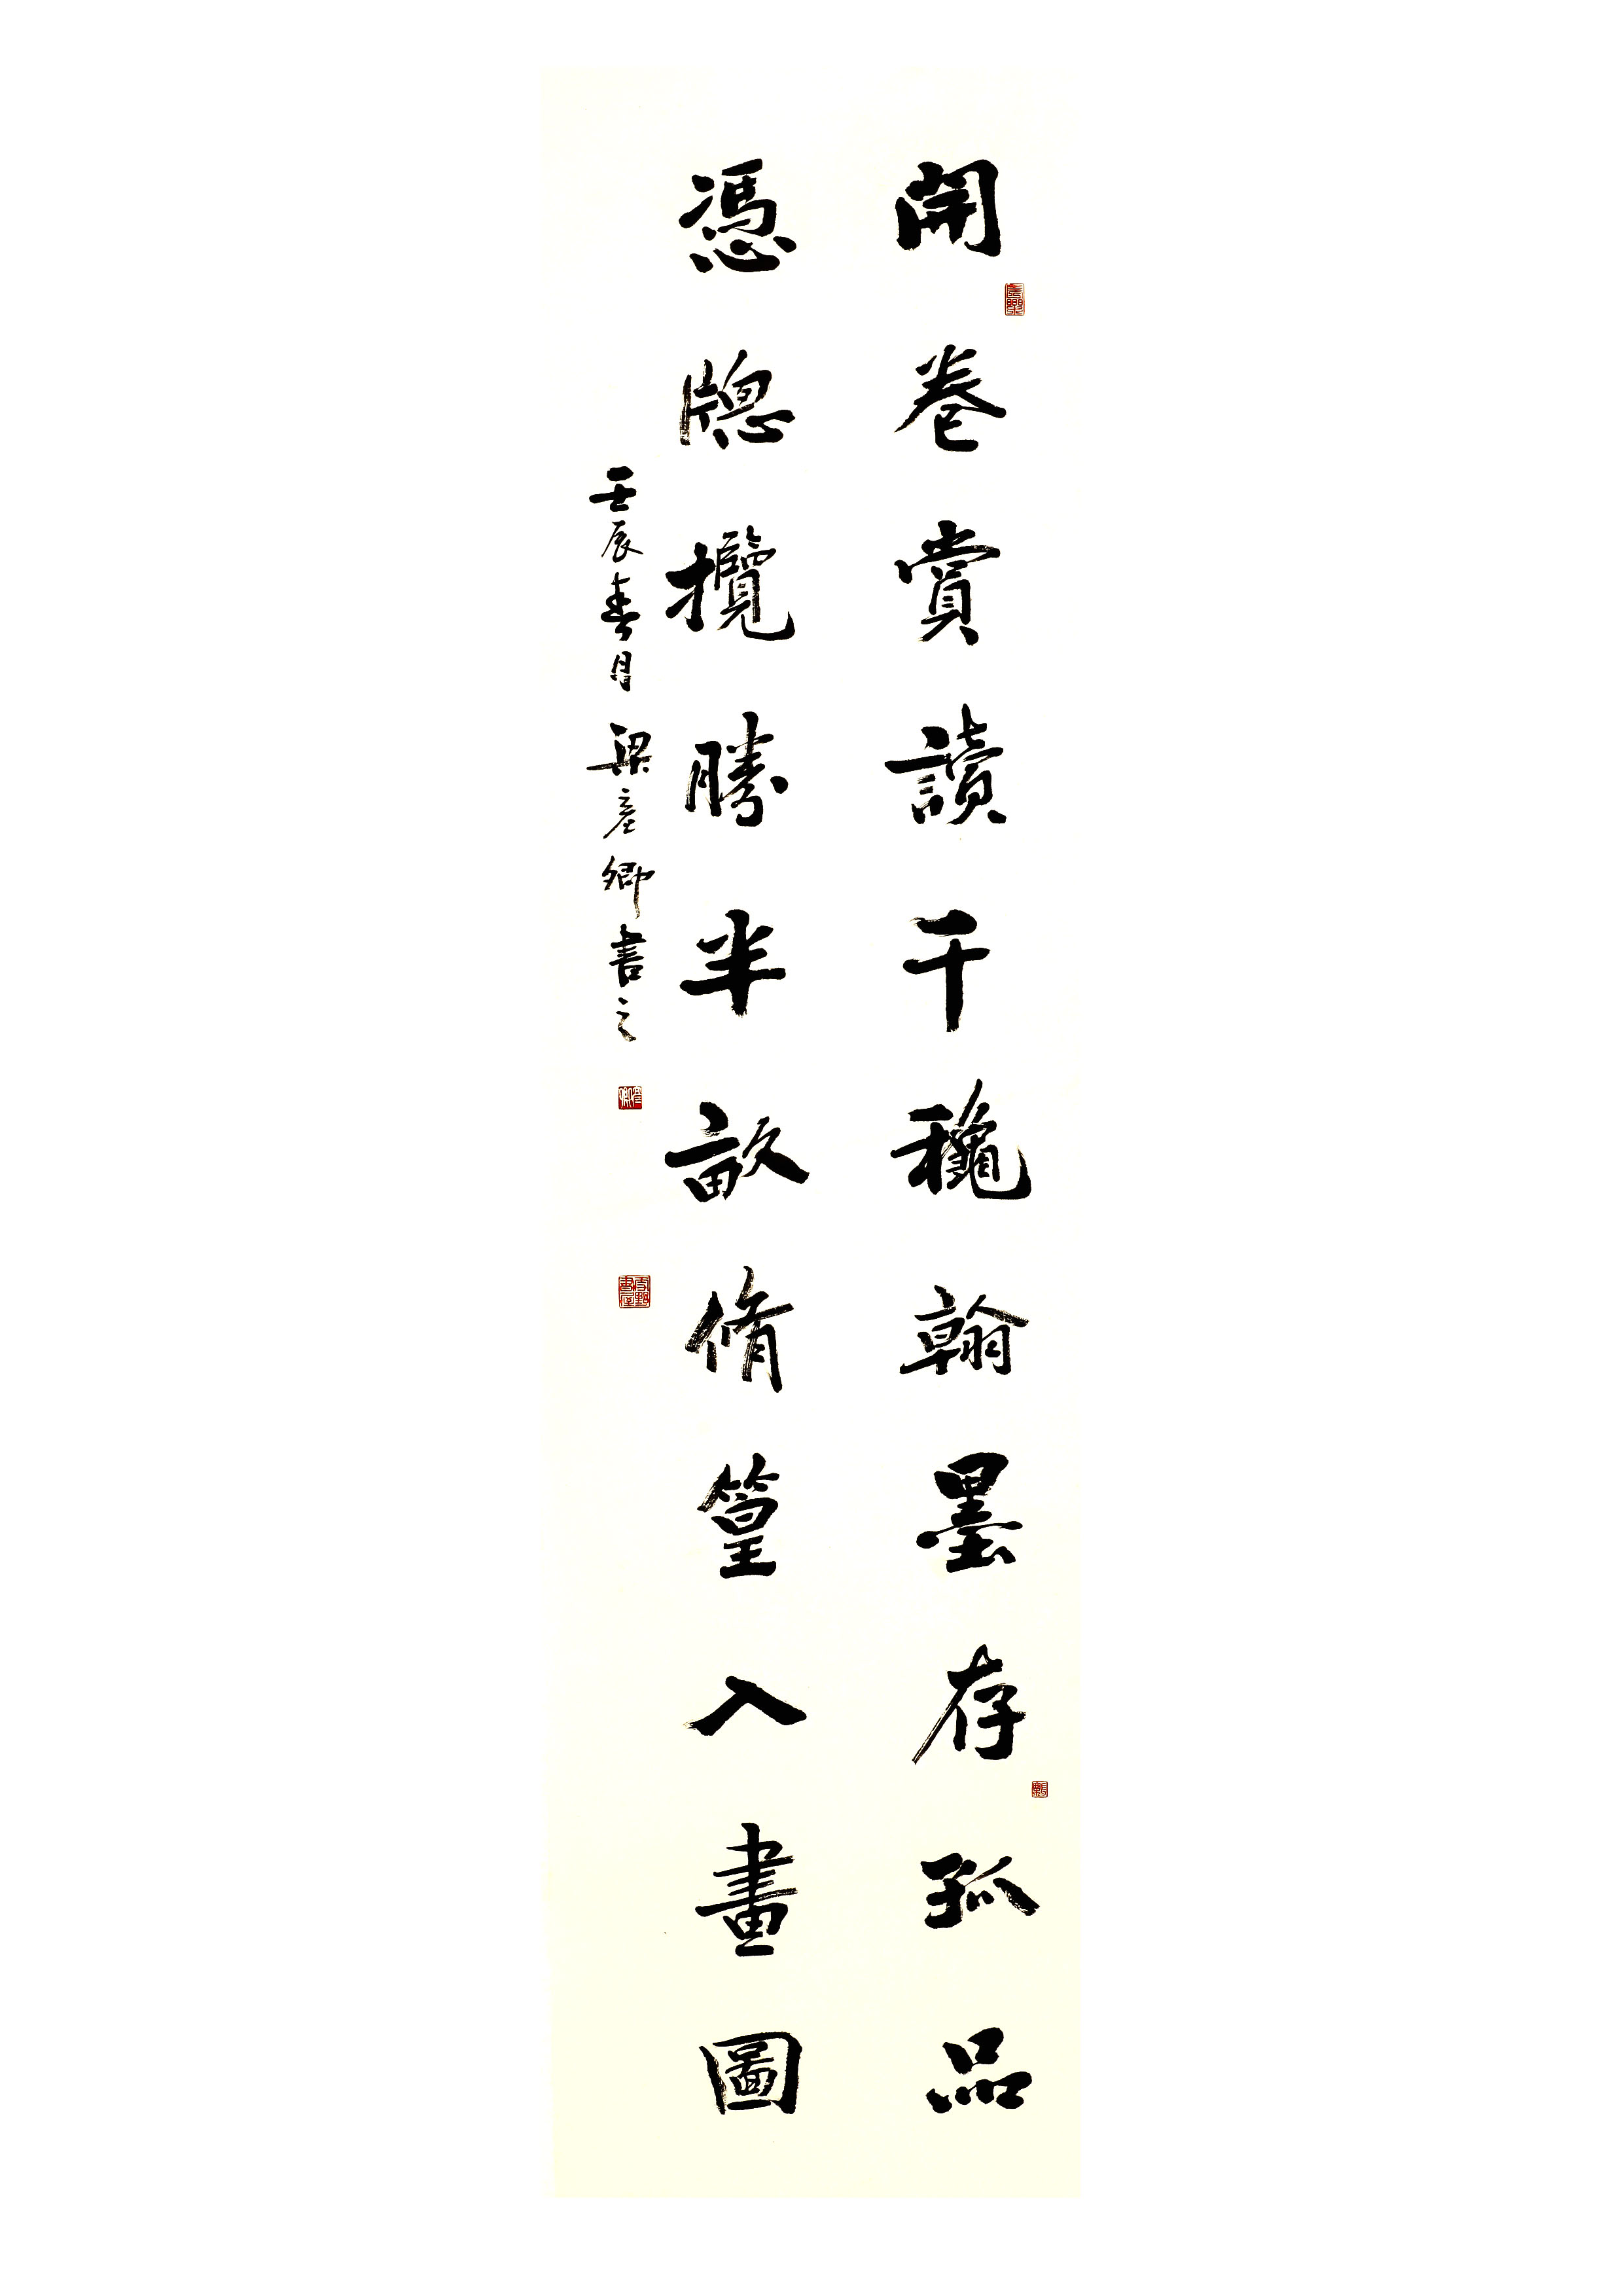 開卷賞讀千穐翰墨存孤品
憑牎攬勝半畝脩篁入畫圖
壬辰春月梁彦卿書之